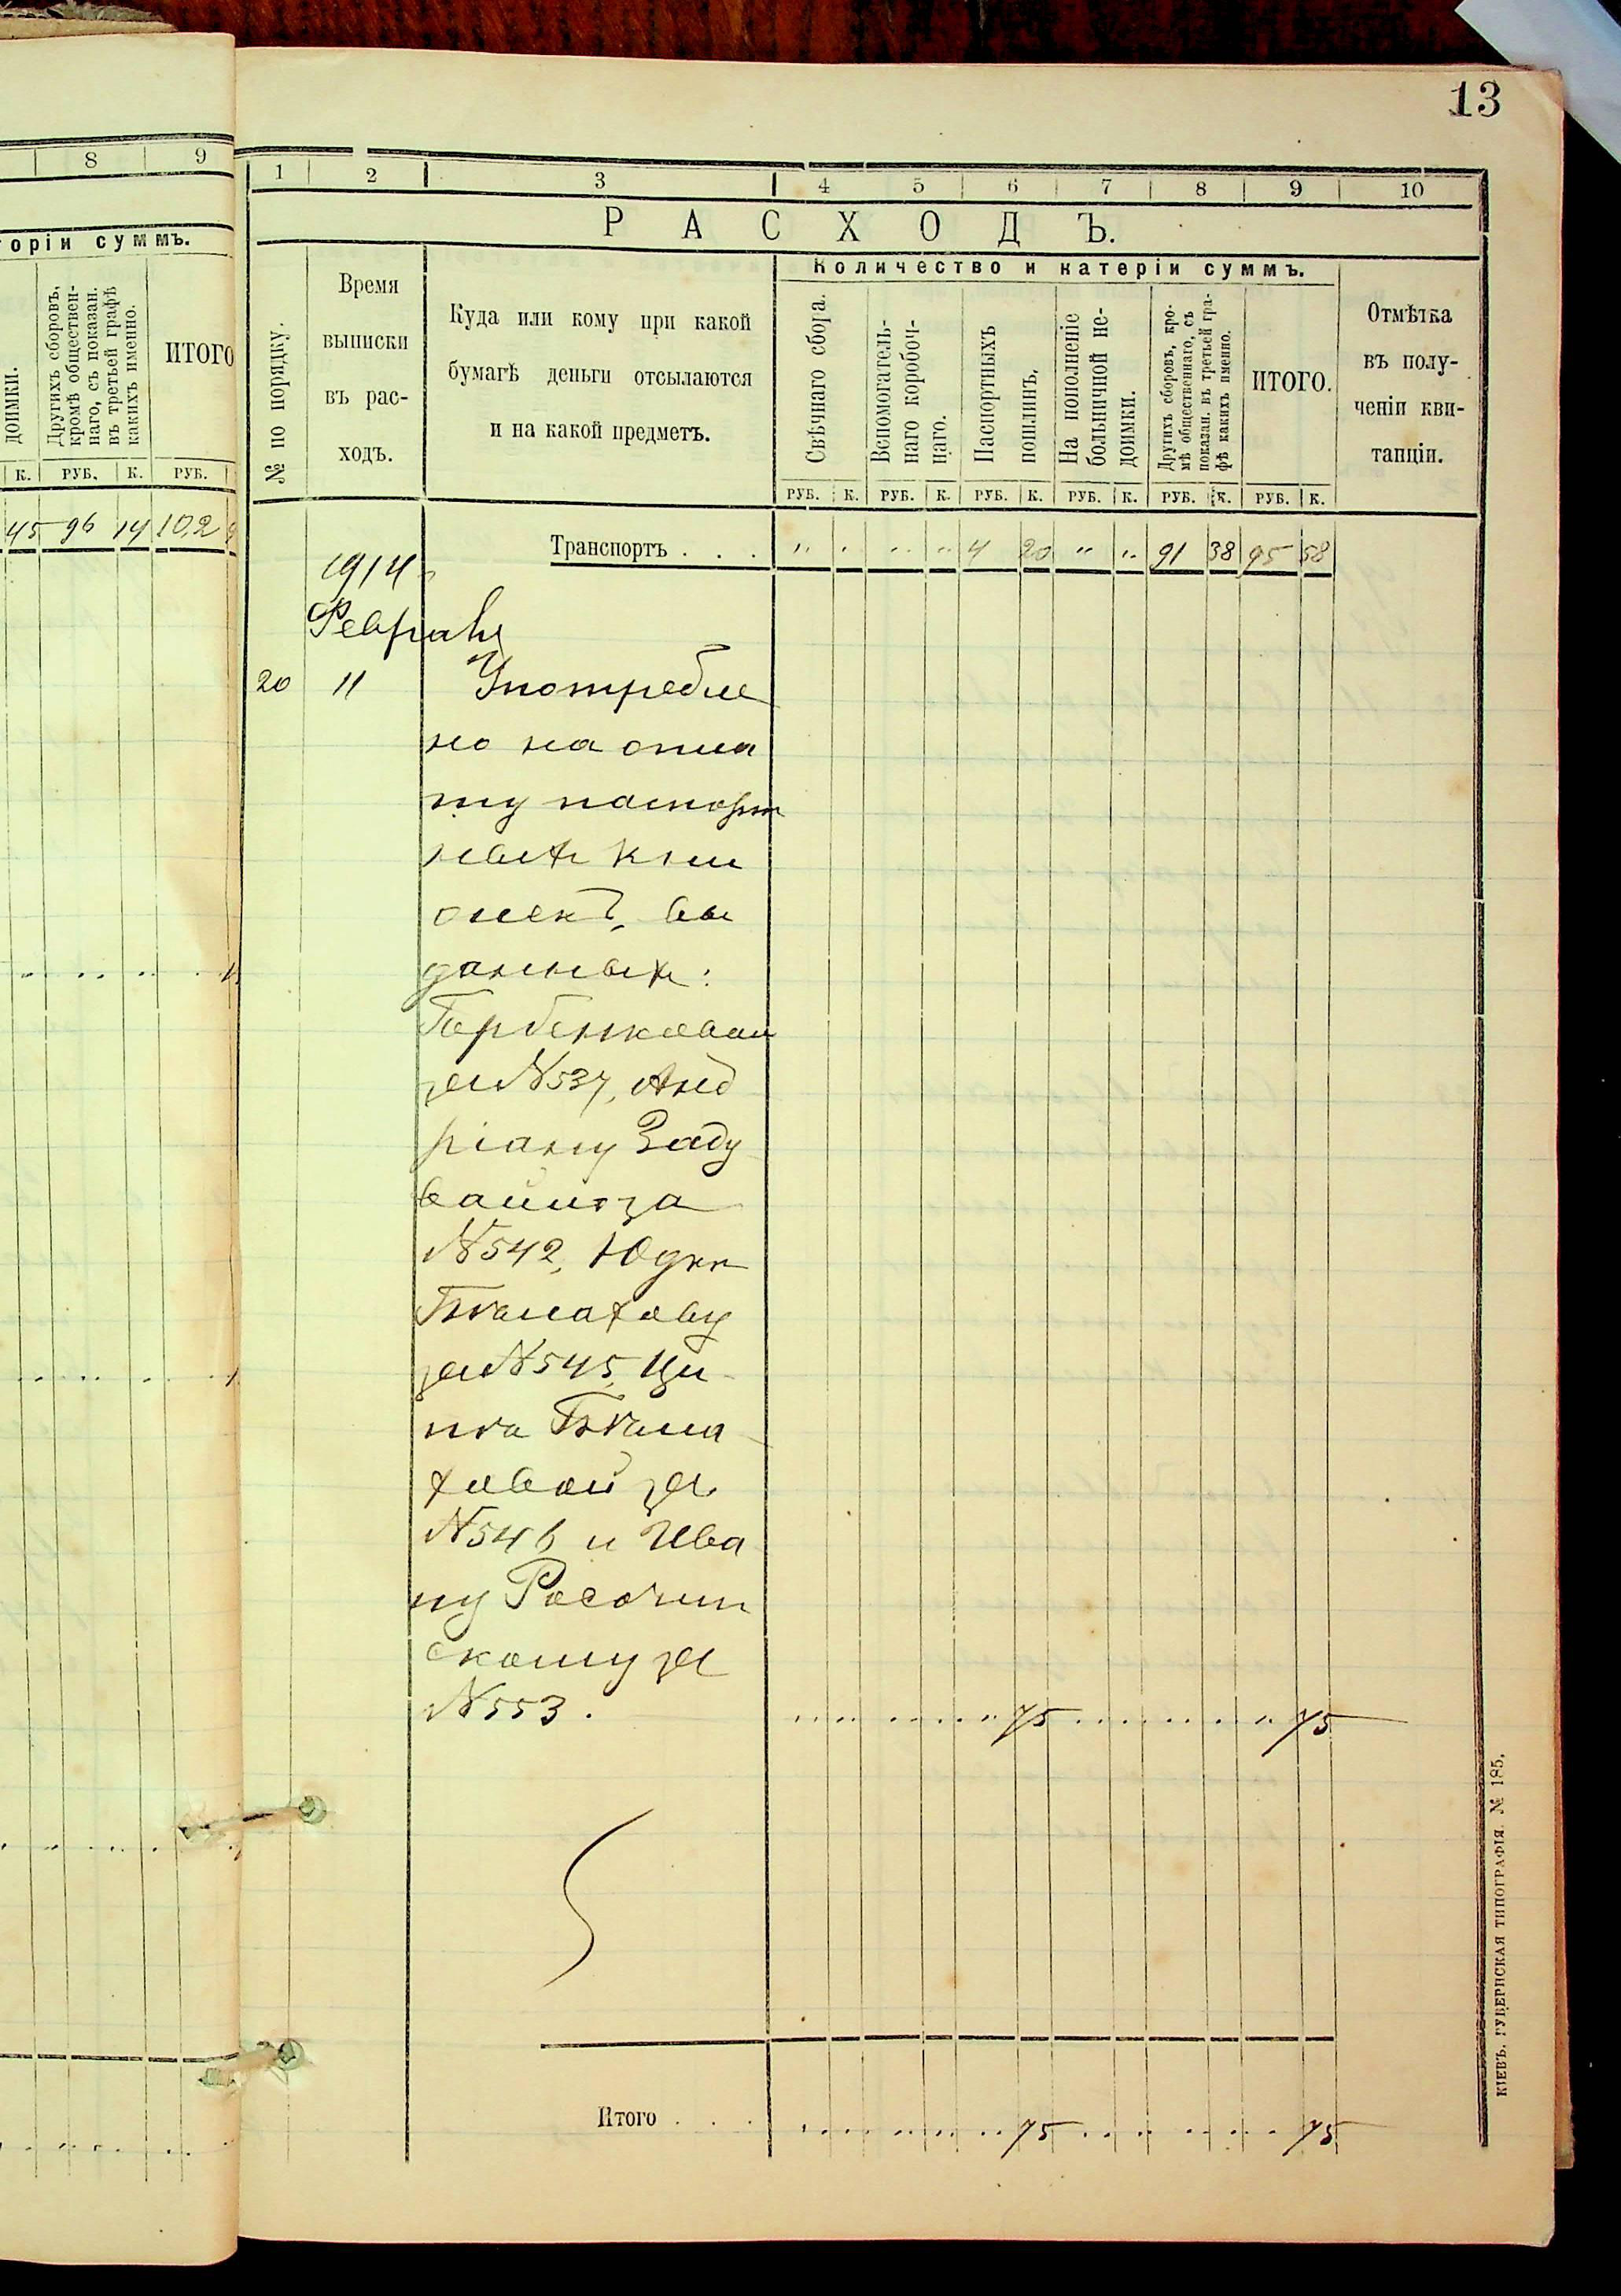 13
8 9
горіи суммъ.
доимки.
Другихъ сборовъ,
кромѣ обществен-
наго, съ показан.
въ третьей графѣ
какихъ именно.
ИТОГО
К. РУБ. К. РУБ.
45 96 14 102
1 2 3 4 5 6 7 8 9 10
РАСХОДЪ.
Количество и катеріи суммъ.
№ по порядку.
Время
выписки
въ рас-
ходъ.
Куда или кому при какой
бумагѣ деньги отсылаются
и на какой предметъ.
Свѣчнаго сбора.
Вспомогатель-
наго коробоч-
наго.
Паспортныхъ
пошлинъ.
На пополненіе
больничной не-
доимки.
Другихъ сборовъ, кро-
мѣ общественнаго, съ
показан. въ третьей гра-
фѣ какихъ именно.
ИТОГО.
Отмѣтка
въ полу-
ченіи кви-
танціи.
РУБ. К. РУБ. К. РУБ. К. РУБ. К. РУБ. К. РУБ. К.
Транспортъ . . . " " " " 4 20 " " 91 38 95 58
1914
Февраль
20 11 Употребле
но на опла
ту паспорт
ныхъ кни
жекъ, вы
данныхъ:
за № 537, Анд
ріану Заду
вайло за
№ 542, Юдки
за № 545, Ци
ховой за
№ 546 и Ива
ну Росочин
скому за
№ 553. 75 75
Итого . . . 75 75
КІЕВЪ. ГУБЕРНСКАЯ ТИПОГРАФІЯ. № 185.